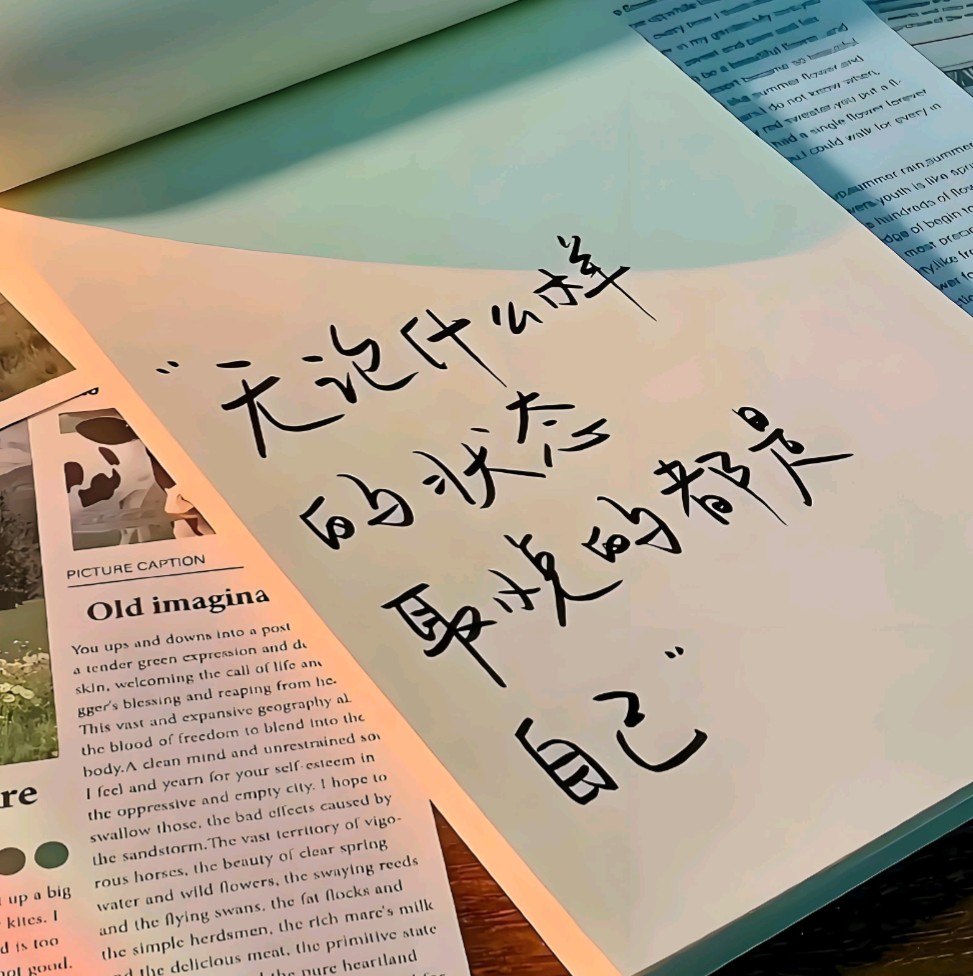 "无论什么样
的状态
取悦的都是
自己"
PICTURE CAPTION
Old imagina
You ups and downs into a post
a tender green expression and
skin, welcoming the call of life
gger's blessing and reaping from
This vast and expansive geography
the blood of freedom to blend into the
body.A clean mind and unrestrained
I feel and yearn for your self-esteem in
the oppressive and empty city. I hope to
swallow those, the bad effects caused by
the sandstorm.The vast territory of vigo-
rous horses, the beauty of clear spring
water and wild flowers, the swaying reeds
and the flying swans, the fat flocks and
the simple herdsmen, the rich mare's milk
the delicious meat, the primitive state
the pure heartland
re
up a big
kites. I
d is too
not good.
every time I
in my garden.My
sweet and
be a beautiful flower, and
became so beautiful
summer flower and
I do not know when,
red sweater,you put a fl-
had a single flower forever
I could walk for every in
summer rain,summer
youth is like
hundreds of
dge of begin to
most
like